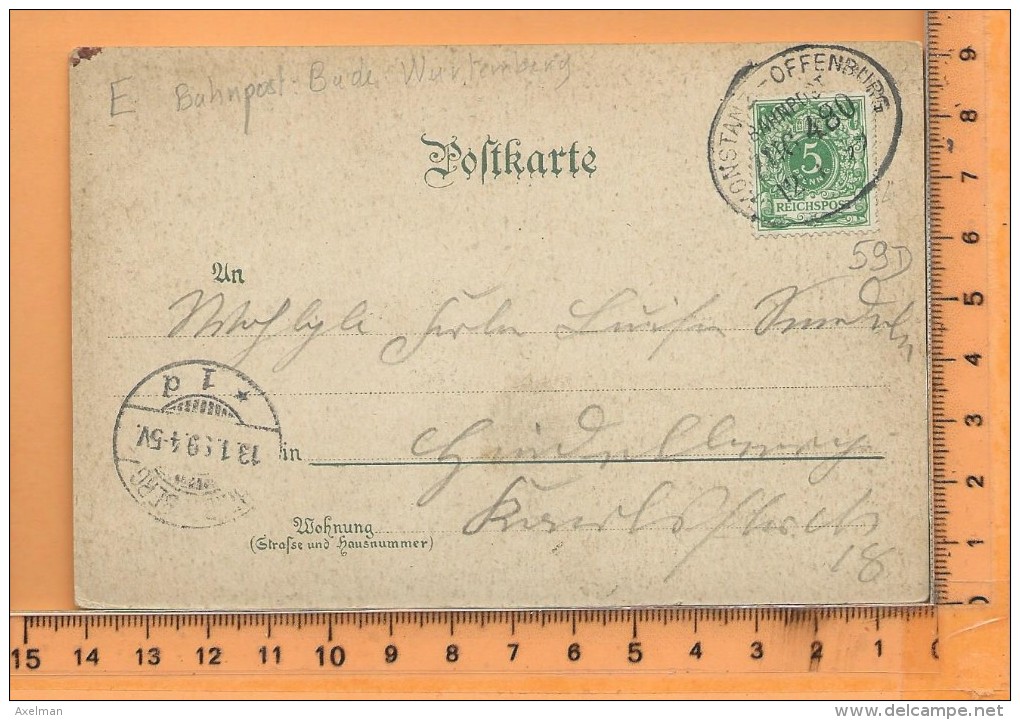 E Bahnpost Bade Wurtemberg
KONSTANZ-OFFENBURG
BAHNPOST
480
5
REICHSPOST
Postkarte
59D
An
Luise
1 d
13.1.99.4-5V.
in Heidelberg
Wohnung
(Strasse und Hausnummer)
18
9
8
7
6
5
4
3
2
1
15 14 13 12 11 10 9 8 7 6 5 4 3 2 1
Axelman
www.delcampe.net